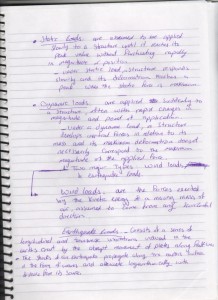 • Static Loads are assumed to be applied
slowly to a structure until it reaches its
peak value without fluctuating rapidly
in magnitude or position.
- under static load, structure responds
slowly and its deformation reaches a
peak when the static force is maximum.
• Dynamic Loads are applied suddenly to
a structure, often with rapid changes in
magnitude and point of application.
- Under a dynamic load, a structure
develops inertial forces in relation to its
mass and its maximum deformations does not
necessarily correspond to the maximum
magnitude of the applied force.
Two major Types Wind loads
Earthquake loads
Wind Loads: are the forces exerted
by the kinetic energy of a moving mass of
air, assumed to come from any horizontal
direction.
Earthquake Loads - Consists of a series of
longitudinal and transverse vibrations induced in the
earth's crust by the abrupt movement of plates along fault lines
• The shocks of an earthquake propagate along the earth's surface
in the form of waves and attenuate logarithmically with
distance from its source.